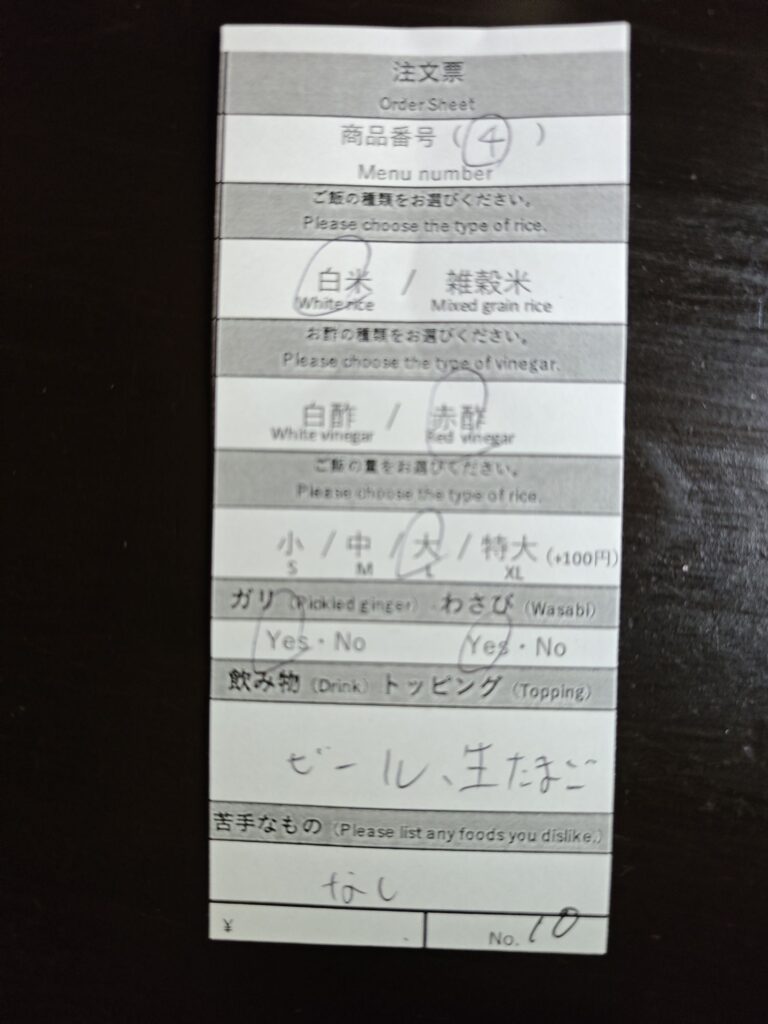 注文票
Order Sheet
商品番号 ( 4 )
Menu number
ご飯の種類をお選びください。
Please choose the type of rice.
白米 / 雑穀米
White rice Mixed grain rice
お酢の種類をお選びください。
Please choose the type of vinegar.
白酢 / 赤酢
White vinegar Red vinegar
ご飯の量をお選びください。
Please choose the type of rice.
小 / 中 / 大 / 特大 (+100円)
S M L XL
ガリ (Pickled ginger) わさび (Wasabi)
Yes・No Yes・No
飲み物 (Drink) トッピング (Topping)
ビール、生たまご
苦手なもの (Please list any foods you dislike.)
なし
¥ No. 10